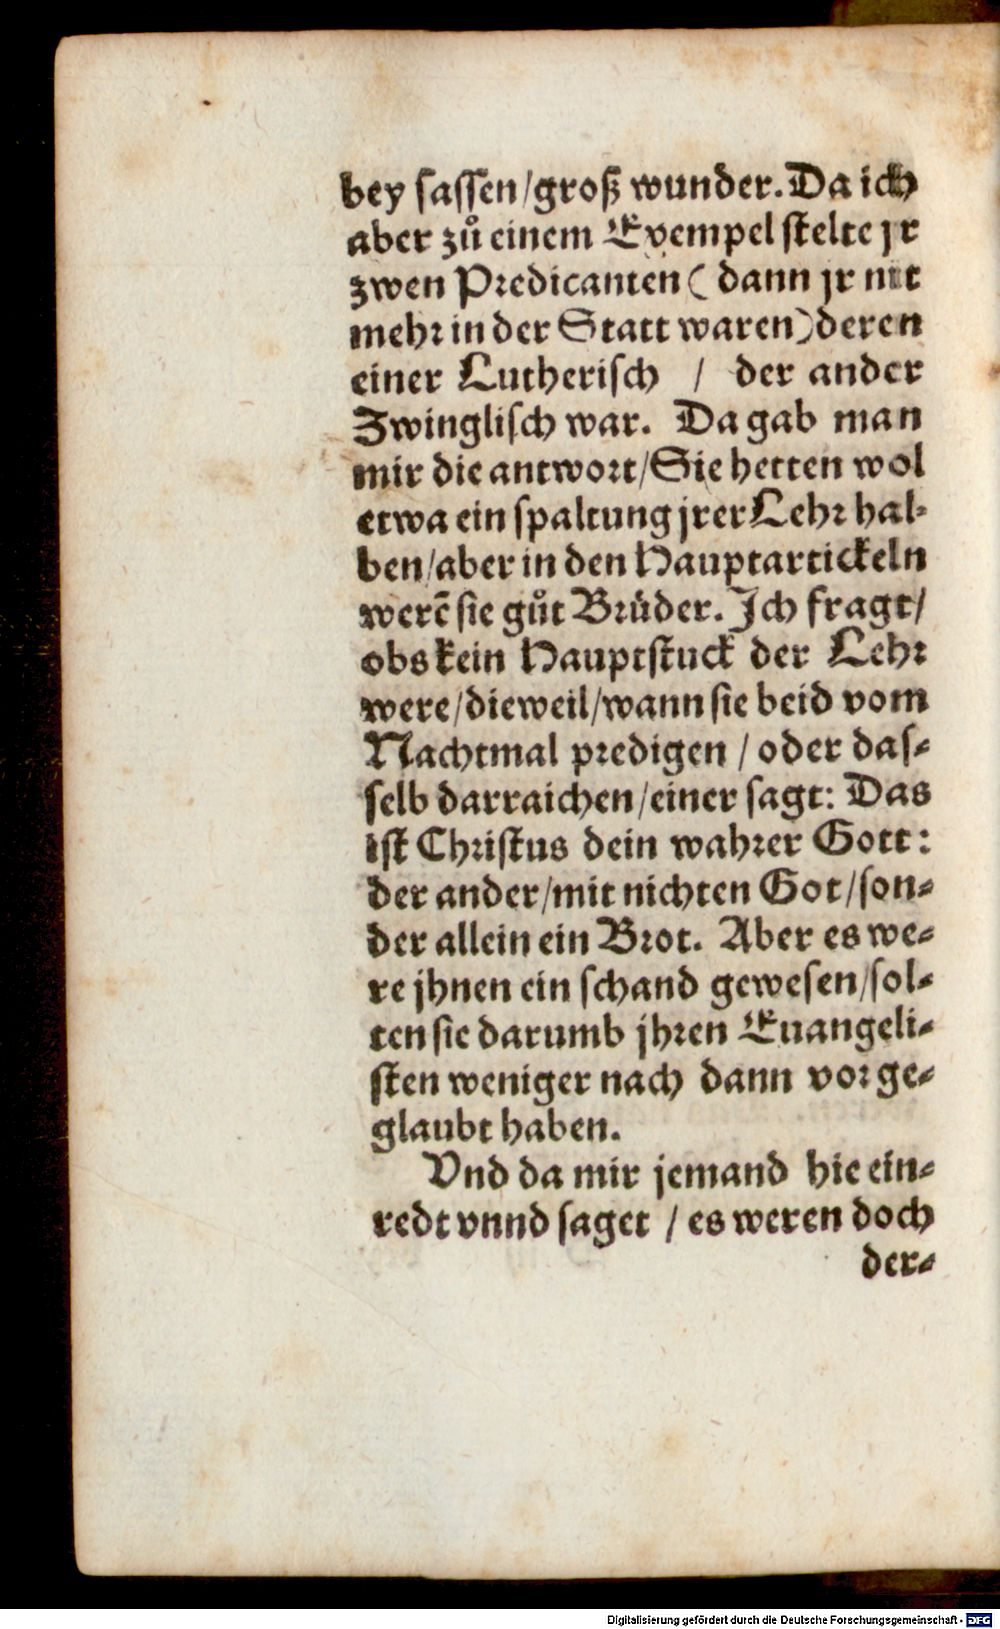 bey sassen/groß wunder. Da ich
aber zů einem Exempel stelte jr
zwen Predicanten ( dann jr nit
mehr in der Statt waren) deren
einer Lutherisch / der ander
Zwinglisch war. Da gab man
mir die antwort/Sie hetten wol
etwa ein spaltung jrer Lehr hal-
ben/aber in den Hauptartickeln
werē sie gůt Brüder. Ich fragt/
obs kein Hauptstuck der Lehr
were/dieweil/wann sie beid vom
Nachtmal predigen / oder das-
selb darraichen/einer sagt: Das
ist Christus dein wahrer Gott:
der ander/mit nichten Got/son-
der allein ein Brot. Aber es we-
re jhnen ein schand gewesen/sol-
ten sie darumb jhren Euangeli-
sten weniger nach dann vor ge-
glaubt haben.
Vnd da mir jemand hie ein-
redt vnnd saget / es weren doch
der-
Digitalisierung gefördert durch die Deutsche Forschungsgemeinschaft - DFG